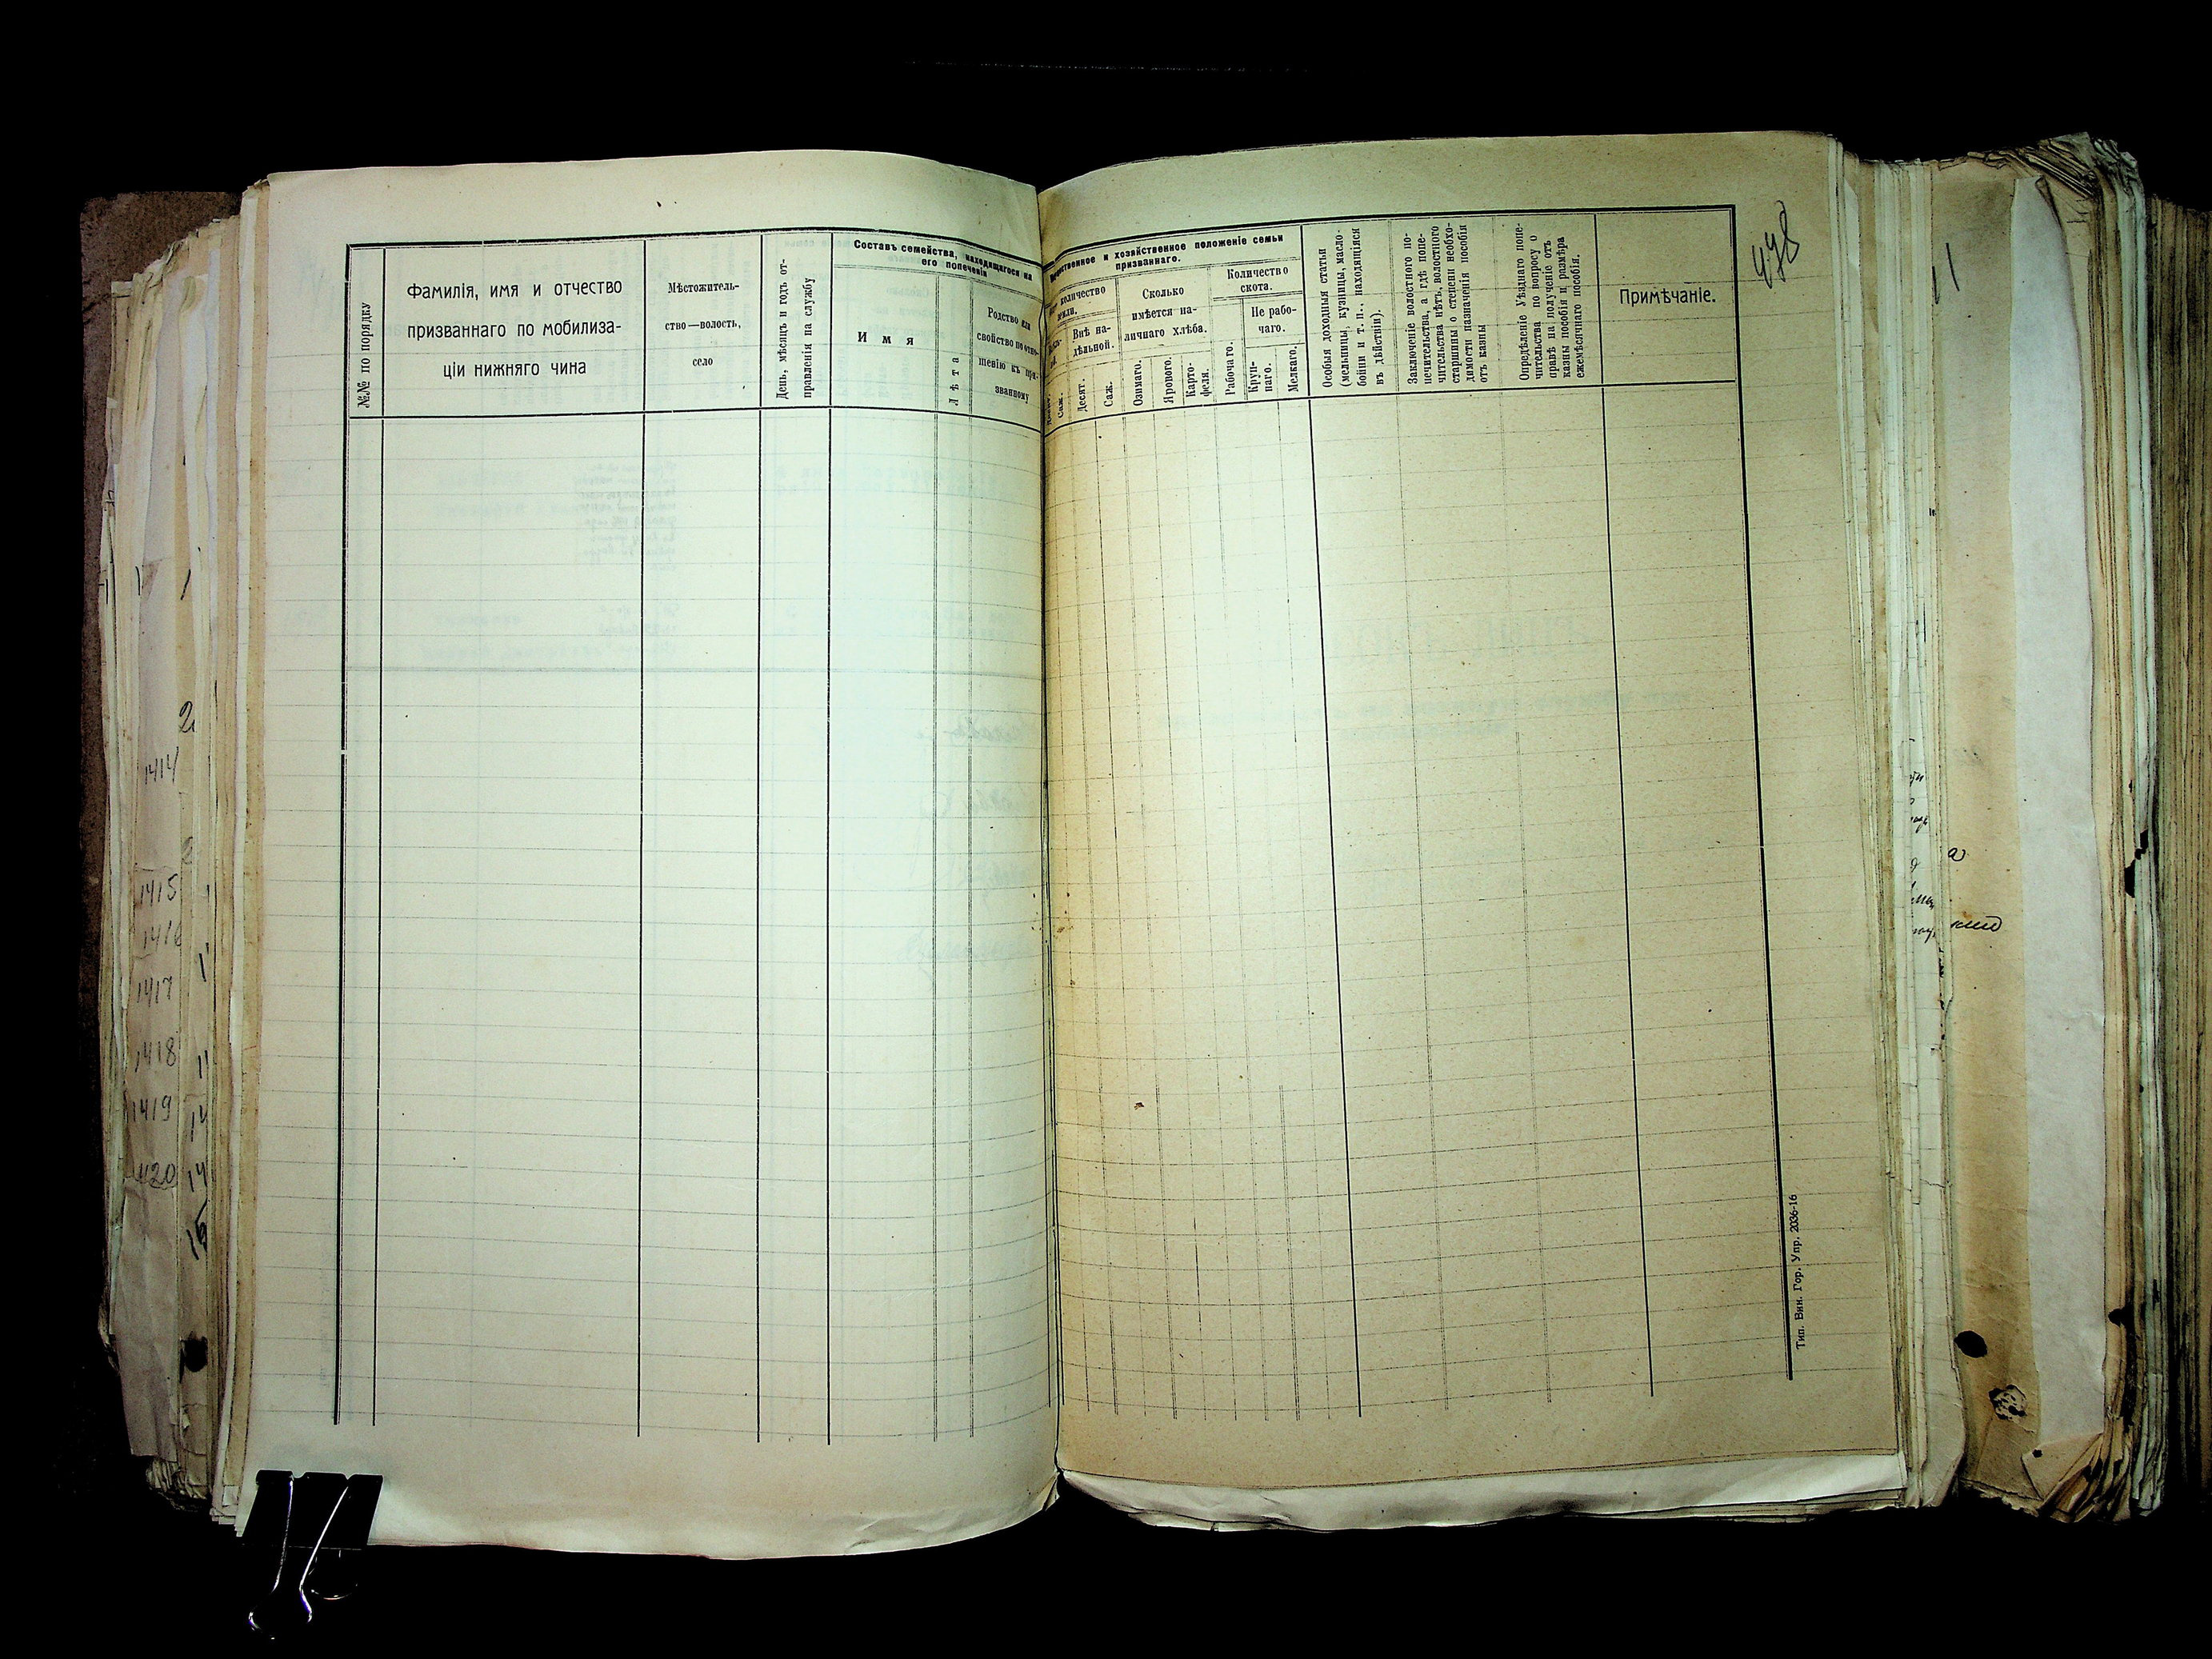 №№ по порядку
Фамилія, имя и отчество
призваннаго по мобилиза-
ціи нижняго чина
Мѣстожитель-
ство—волость,
село
День, мѣсяцъ и годъ от-
правленія на службу
Составъ семейства, находящагося на
его попеченіи
И м я
Л ѣ т а
Родство или
свойство по отно-
шенію къ при-
званному
и хозяйственное положеніе семьи
призваннаго.
количество
земли.
Внѣ на-
дѣльной.
Саж.
Десят.
Саж.
Сколько
имѣется на-
личнаго хлѣба.
Озимаго.
Яроваго.
Карто-
феля.
Количество
скота.
Рабочаго.
Не рабо-
чаго.
Круп-
наго.
Мелкаго.
Особыя доходныя статьи
(мельницы, кузницы, масло-
бойни и т. п., находящіяся
въ дѣйствіи).
Заключеніе волостного по-
печительства, а гдѣ попе-
чительства нѣтъ, волостного
старшины о степени необхо-
димости назначенія пособія
отъ казны
Опредѣленіе Уѣзднаго попе-
чительства по вопросу о
правѣ на полученіе отъ
казны пособія и размѣра
ежемѣсячнаго пособія.
Примѣчаніе.
478
Тип. Вин. Гор. Упр. 2036-16
2
1414
1415
1416
1417
1418
1419
1420
11
14
14
15